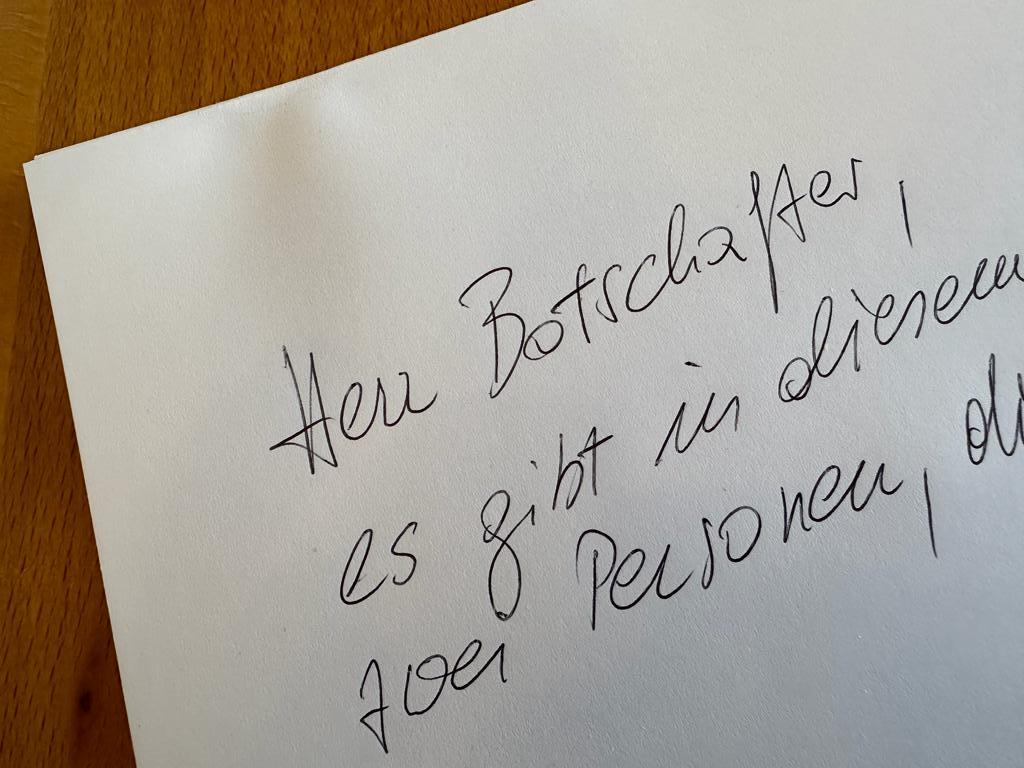 Herr Botschafter,
es gibt in diesem
zwei Personen, di